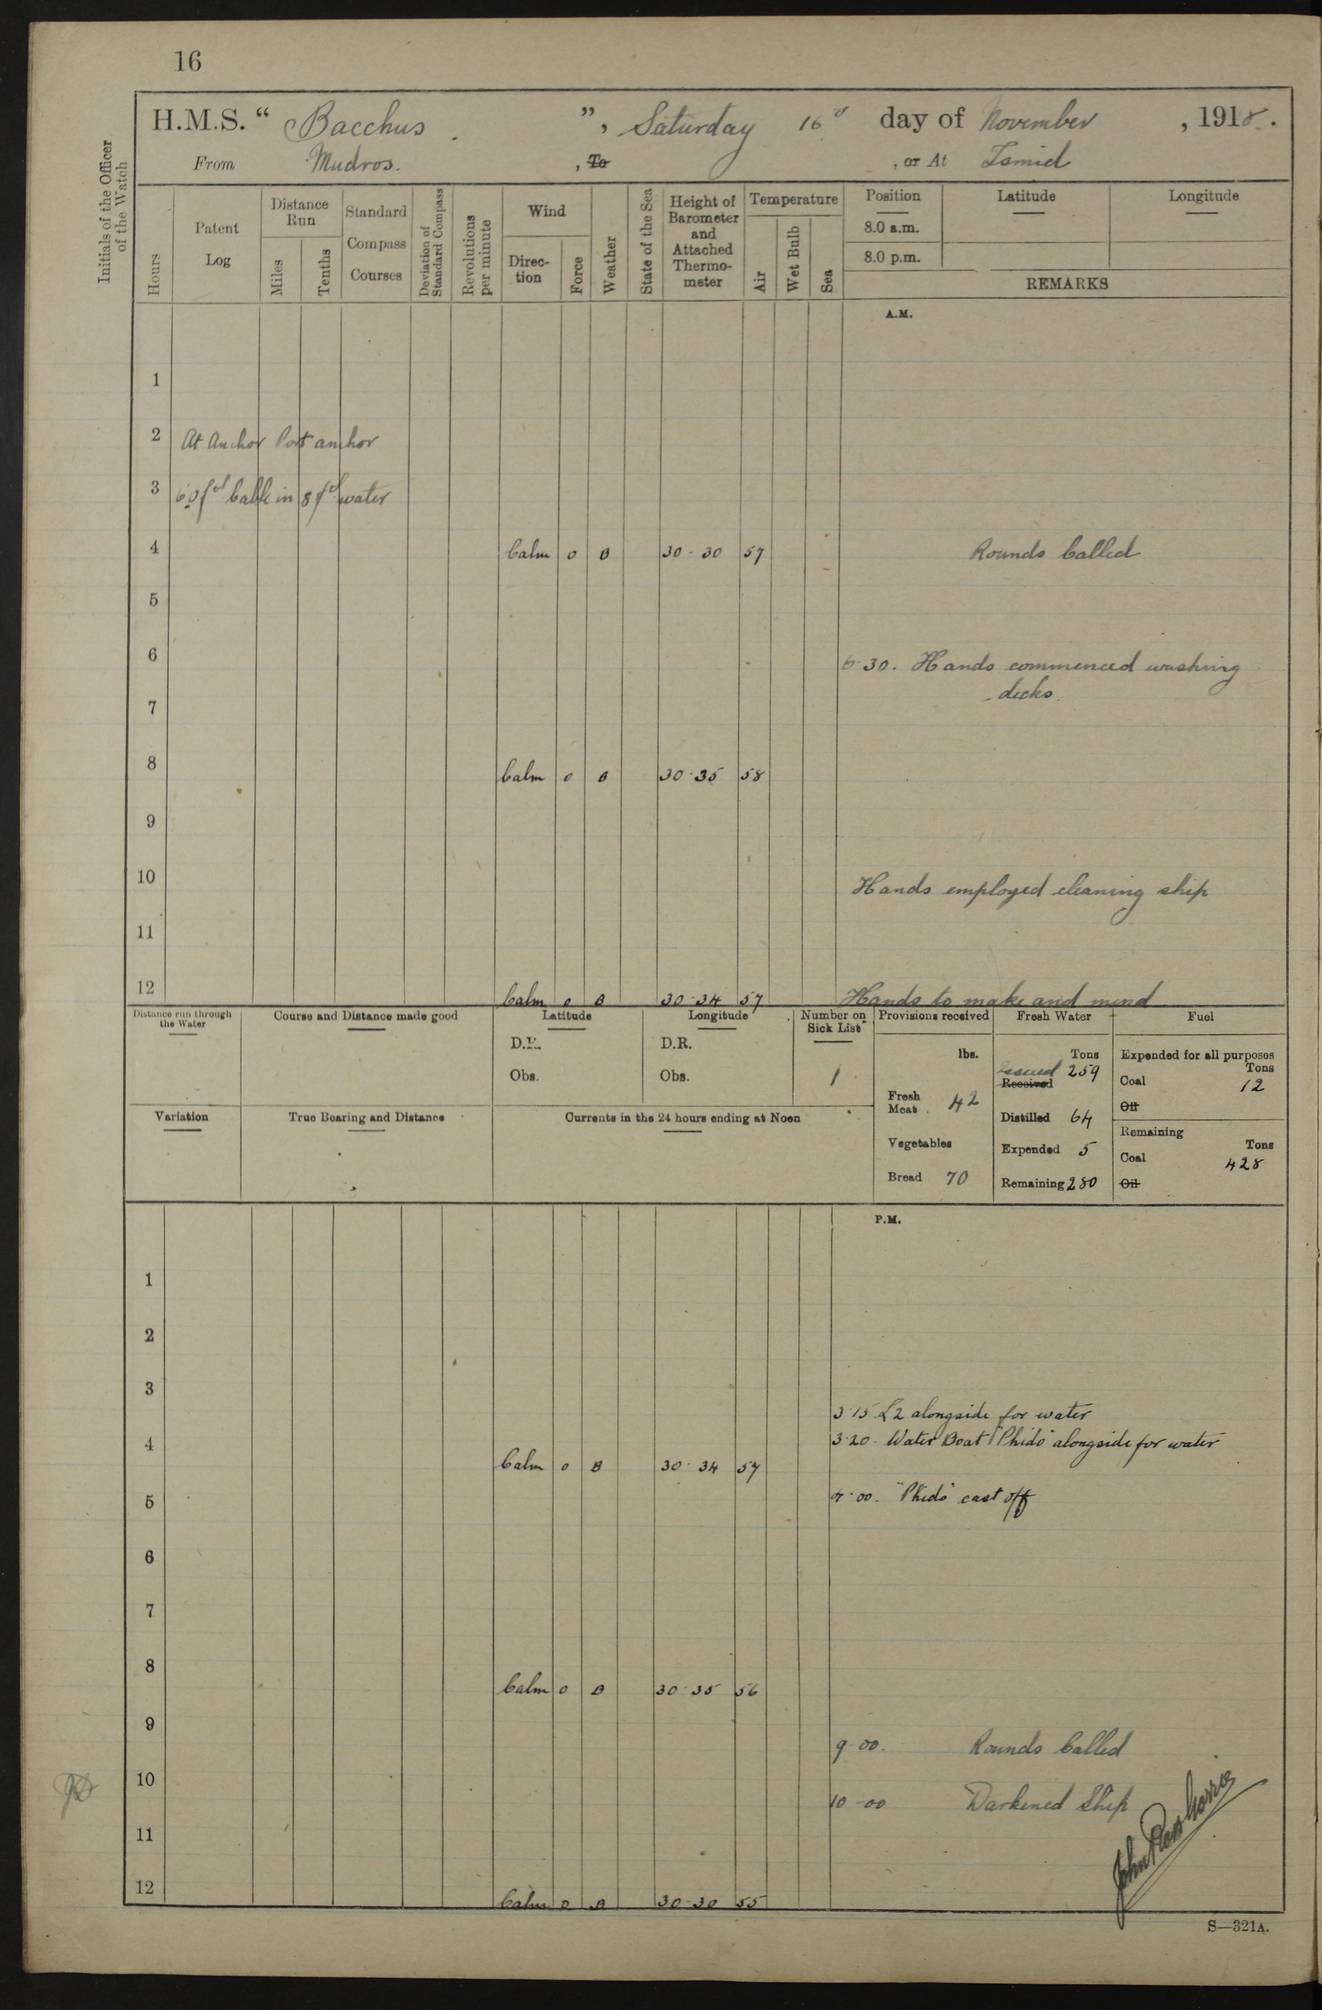 16
H.M.S. " Bacchus ", Saturday 16th day of November, 1918.
From Mudros. , To , or At Ismid
Initials of the Officer of the Watch
Hours
Patent Log
Distance Run
Miles
Tenths
Standard Compass Courses
Deviation of Standard Compass
Revolutions per minute
Wind
Direction
Force
Weather
State of the Sea
Height of Barometer and Attached Thermometer
Temperature
Air
Wet Bulb
Sea
Position
8.0 a.m.
8.0 p.m.
Latitude
Longitude
REMARKS
A.M.
1
2 At Anchor Port anchor
3 60 fms Cable in 8 fms water
4 Calm 0 B 30.30 57 Rounds Called
5
6 6.30. Hands commenced washing
decks.
7
8 Calm 0 B 30.35 58
9
10 Hands employed cleaning ship
11
12 Calm 0 B 30.34 57 Hands to make and mend
Distance run through the Water
Course and Distance made good
Latitude
D.R.
Obs.
Longitude
D.R.
Obs.
Number on Sick List
1
Provisions received
lbs.
Fresh Meat 42
Vegetables
Bread 70
Fresh Water
Tons
Issued 259
Received
Distilled 64
Expended 5
Remaining 280
Fuel
Expended for all purposes
Tons
Coal 12
Oil
Remaining
Tons
Coal 428
Oil
Variation
True Bearing and Distance
Currents in the 24 hours ending at Noon
P.M.
1
2
3
3.15. L2 alongside for water
3.20. Water Boat "Phido" alongside for water
4 Calm 0 B 30.34 57
5 "Phido" cast off
6
7
8 Calm 0 B 30.35 56
9 9.00. Rounds Called
10 10-00 Darkened Ship
11
12 Calm 0 B 30.30 55
S—321A.